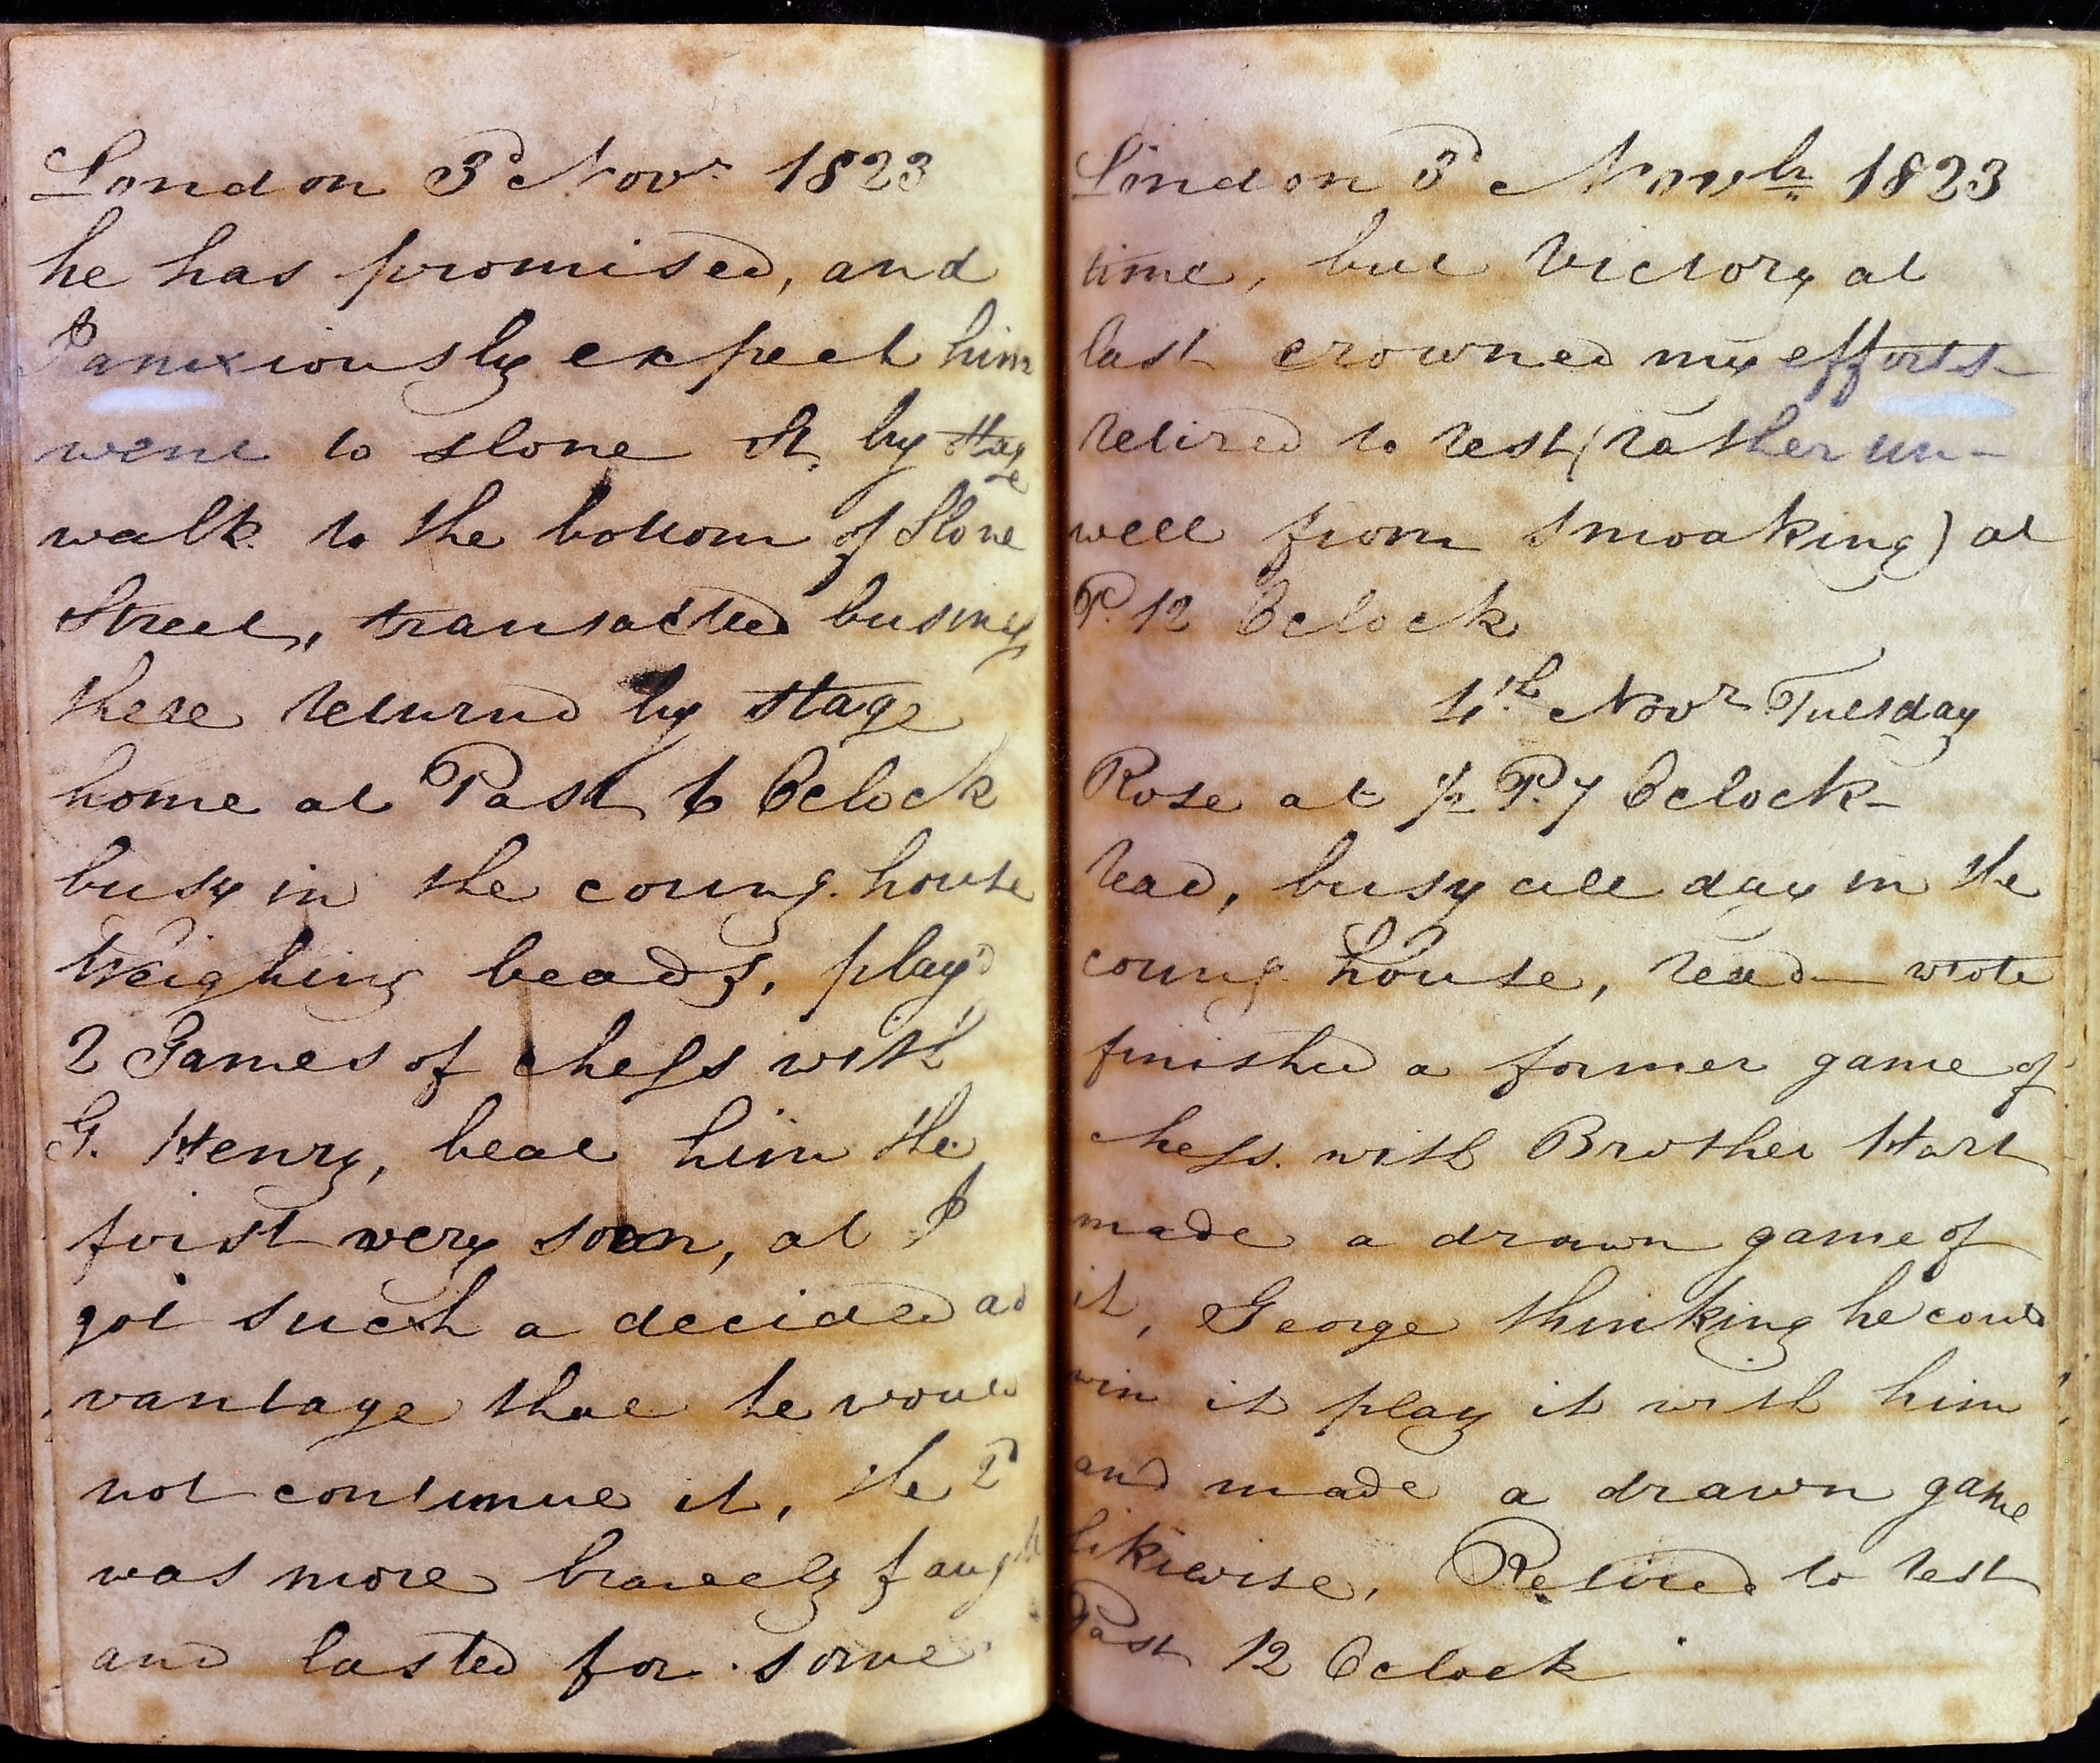 London 3d Novr 1823
he has promised, and
I anxiously expect him
went to slone St. by stage
walk to the bottom of Slone
Street, transacted business
there returnd by stage
home at Past 6 Oclock
busy in the coung. house
Weighing beads, playd
2 Games of chess with
G. Henry, beat him the
first very soon, at I
got such a decided ad
vantage that he would
not continue it, the 2d
was more bravely faught
and lasted for some
London 3d Novbr 1823
time, but Victory at
last crowned my efforts-
retired to rest (rather un-
well from smoaking) at
P. 12 Oclock
4th Novr Tuesday
Rose at ½ P. 7 Oclock-
read, busy all day in the
coung. house, read- wrote
finished a former game of
chess. with Brother Hart
made a drawn game of
it, George thinking he could
win it play it with him
and made a drawn game
likewise, Retired to rest
Past 12 Oclock